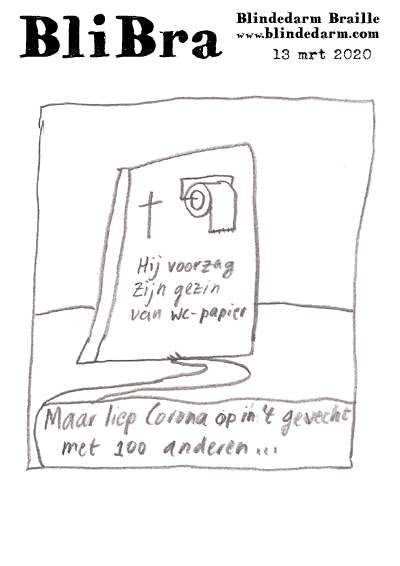 BliBra
Blindedarm Braille
www.blindedarm.com
13 mrt 2020
Hij voorzag
Zijn gezin
van wc-papier
Maar liep Corona op in 't gevecht
met 100 anderen...